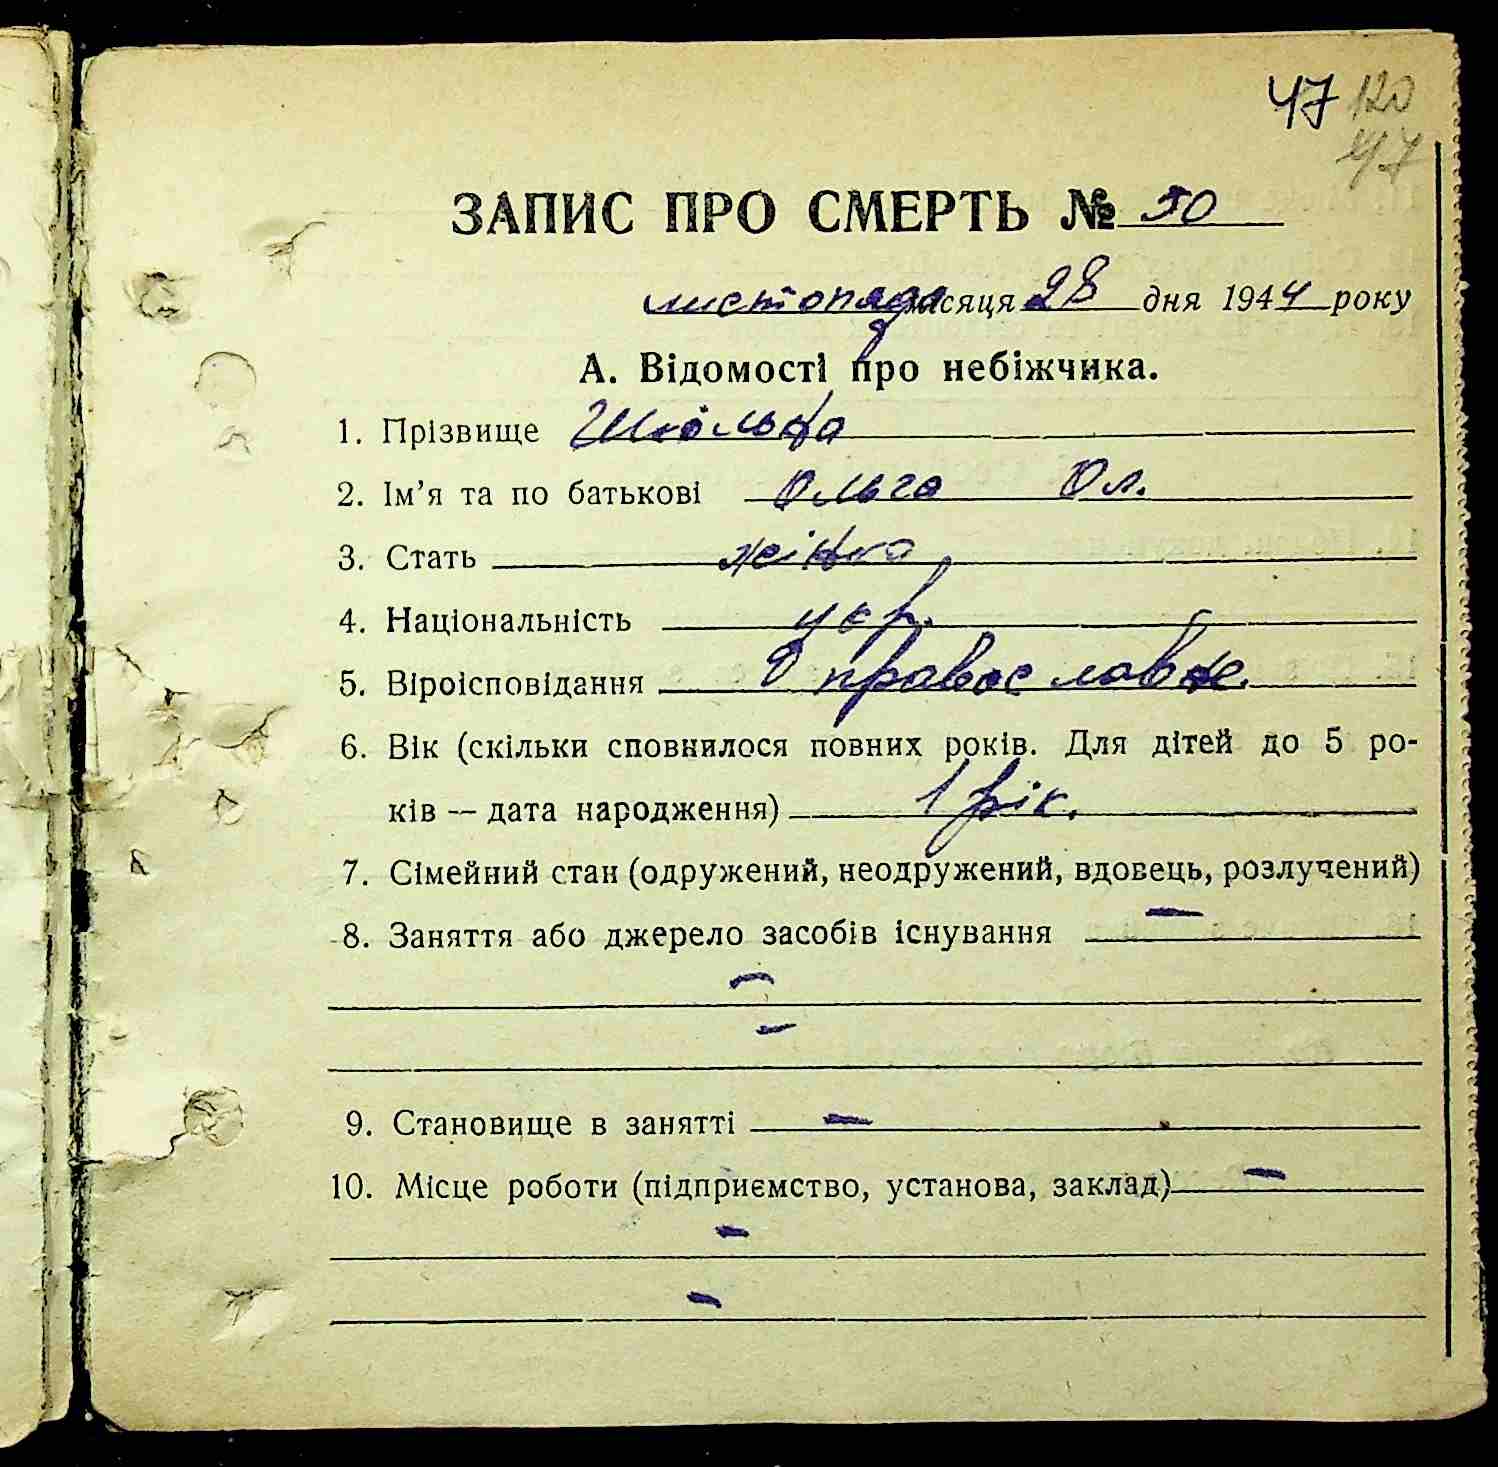 47 120
47
ЗАПИС ПРО СМЕРТЬ № 50
листопада місяця 28 дня 1944 року
А. Відомості про небіжчика.
1. Прізвище
2. Ім’я та по батькові Ольга Ол.
3. Стать жінка
4. Національність укр.
5. Віроісповідання православне.
6. Вік (скільки сповнилося повних років. Для дітей до 5 ро-
ків — дата народження) 1 рік.
7. Сімейний стан (одружений, неодружений, вдовець, розлучений)
8. Заняття або джерело засобів існування —
—
—
9. Становище в занятті —
10. Місце роботи (підприємство, установа, заклад) —
—
—